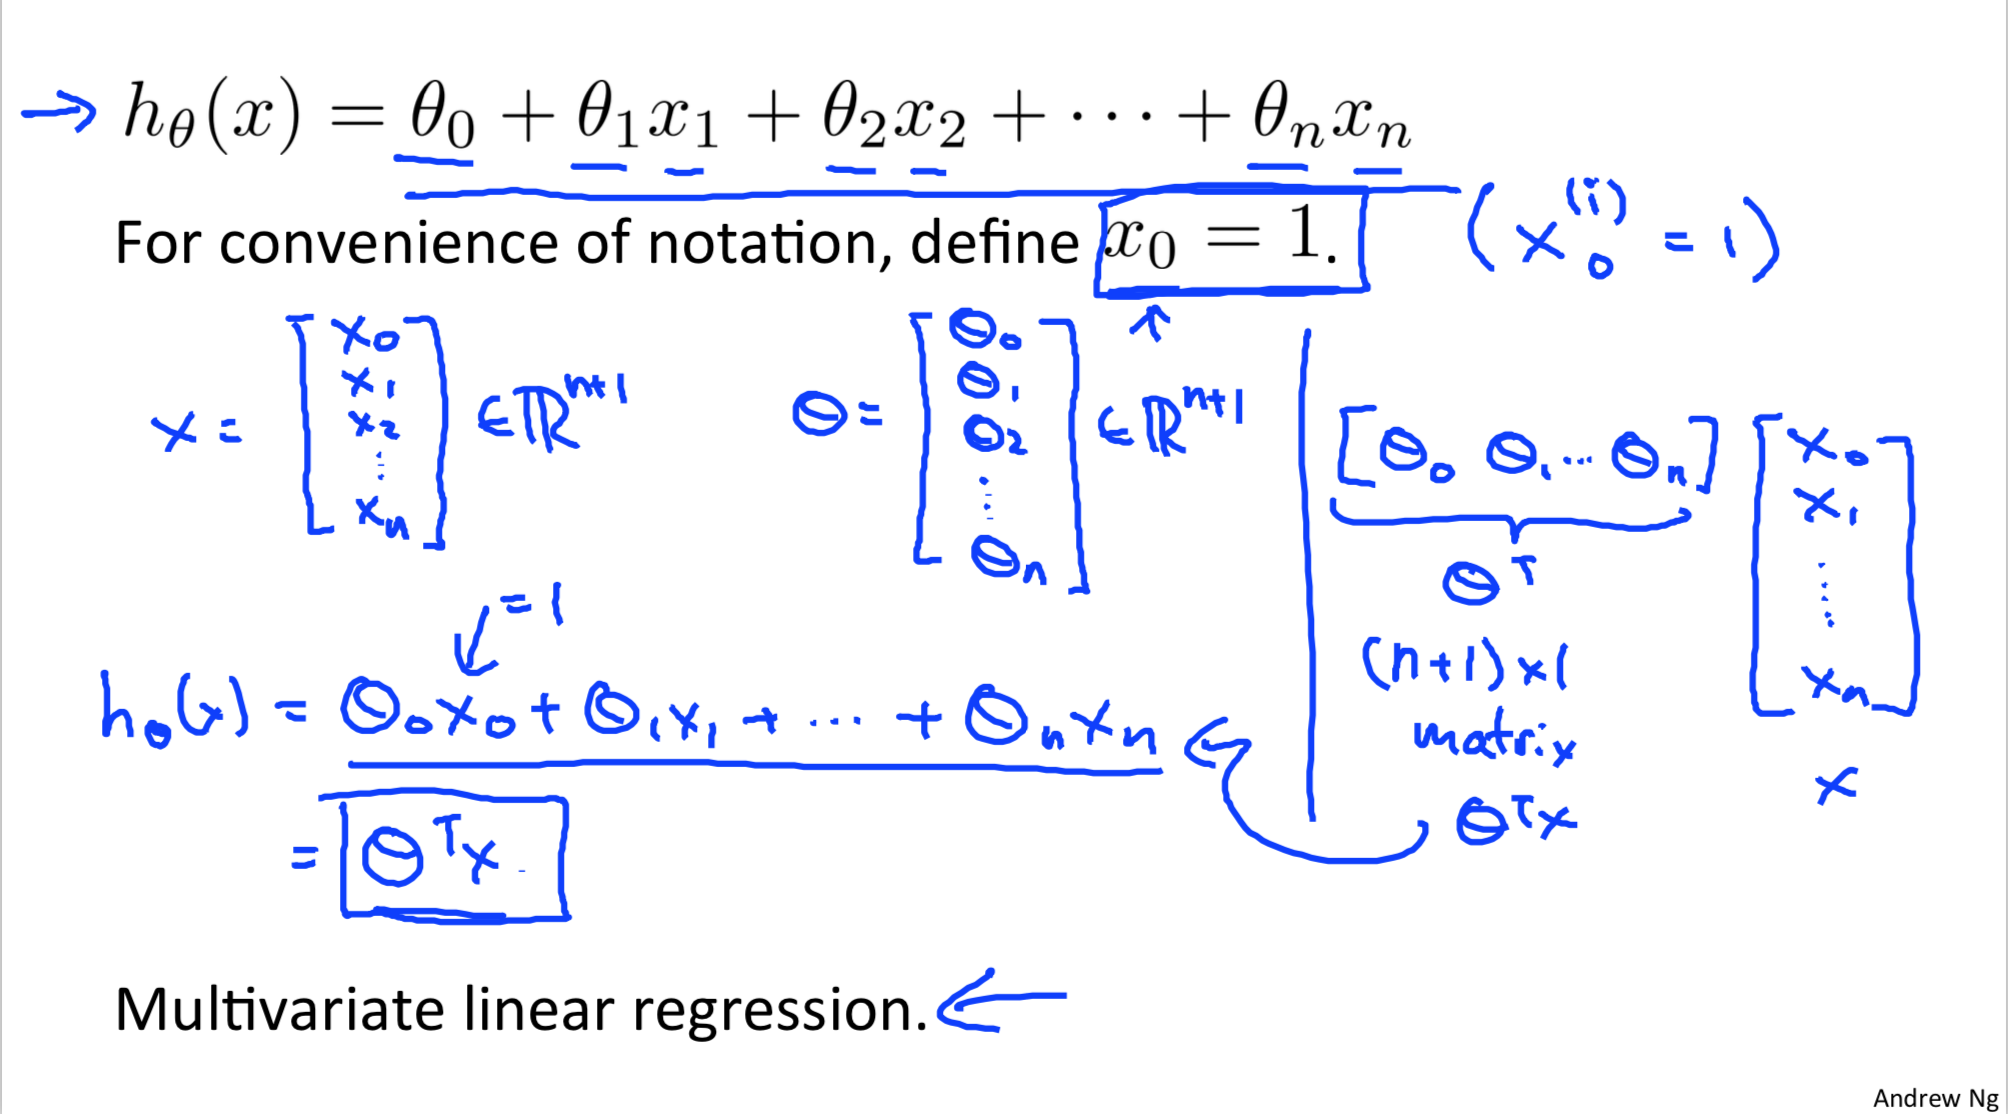 → hθ(x) = θ₀ + θ₁x₁ + θ₂x₂ + ··· + θₙxₙ
For convenience of notation, define x₀ = 1. (x₀⁽ⁱ⁾ = 1)
x = [x₀ x₁ x₂ ⋮ xₙ] ∈ ℝⁿ⁺¹
θ = [θ₀ θ₁ θ₂ ⋮ θₙ] ∈ ℝⁿ⁺¹
= 1
hθ(x) = θ₀x₀ + θ₁x₁ + ··· + θₙxₙ ←
= θᵀx
[θ₀ θ₁ ... θₙ] [x₀ x₁ ⋮ xₙ]
θᵀ
(n+1)×1
matrix
x
θᵀx
Multivariate linear regression. ←
Andrew Ng